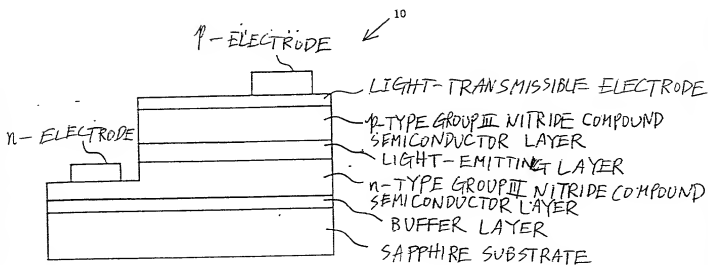 10
p-ELECTRODE
LIGHT-TRANSMISSIBLE ELECTRODE
n-ELECTRODE
p-TYPE GROUP III NITRIDE COMPOUND
SEMICONDUCTOR LAYER
LIGHT-EMITTING LAYER
n-TYPE GROUP III NITRIDE COMPOUND
SEMICONDUCTOR LAYER
BUFFER LAYER
SAPPHIRE SUBSTRATE